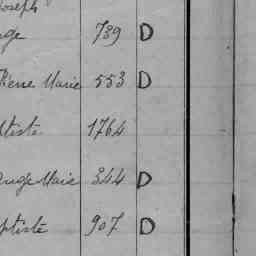 Joseph
ge 739 D
Pierre Marie 553 D
tiste 1764
ange Marie 344 D
ptiste 907 D